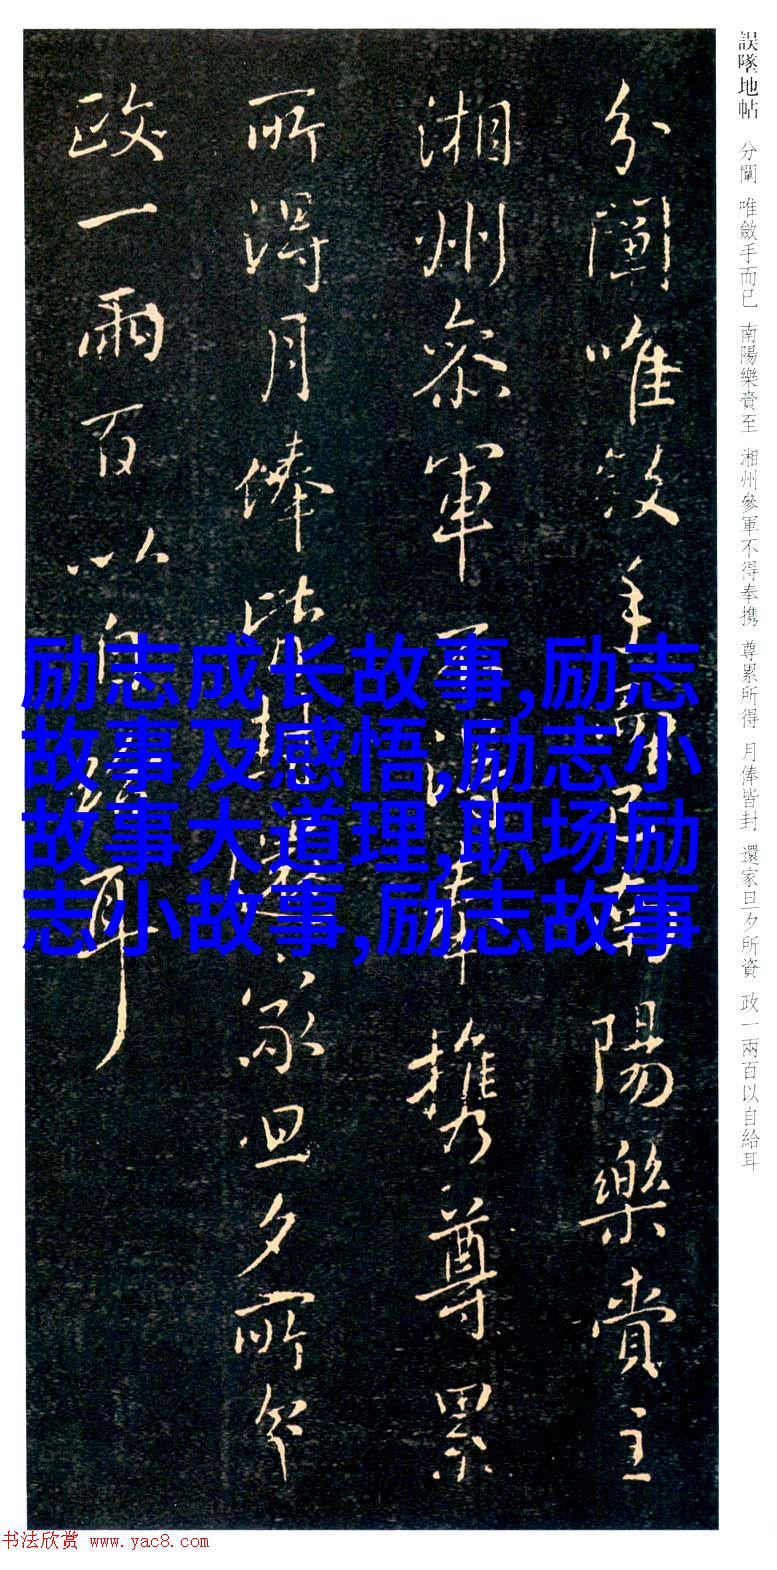 誤墜地帖 分闈 唯斂手而已 南陽樂賚至 湘州參軍不得奉携 尊累所得 月俸皆封 還家旦夕所資 政一兩百以自給耳
分闈唯斂手而已南陽樂賚至
湘州參軍不得奉携尊累
所得月俸皆封還家旦夕所資
政一兩百以自給耳
励志成长故事,励志
故事及感悟,励志小
故事大道理,职场励
志小故事,励志故事
书法欣赏 www.yac8.com